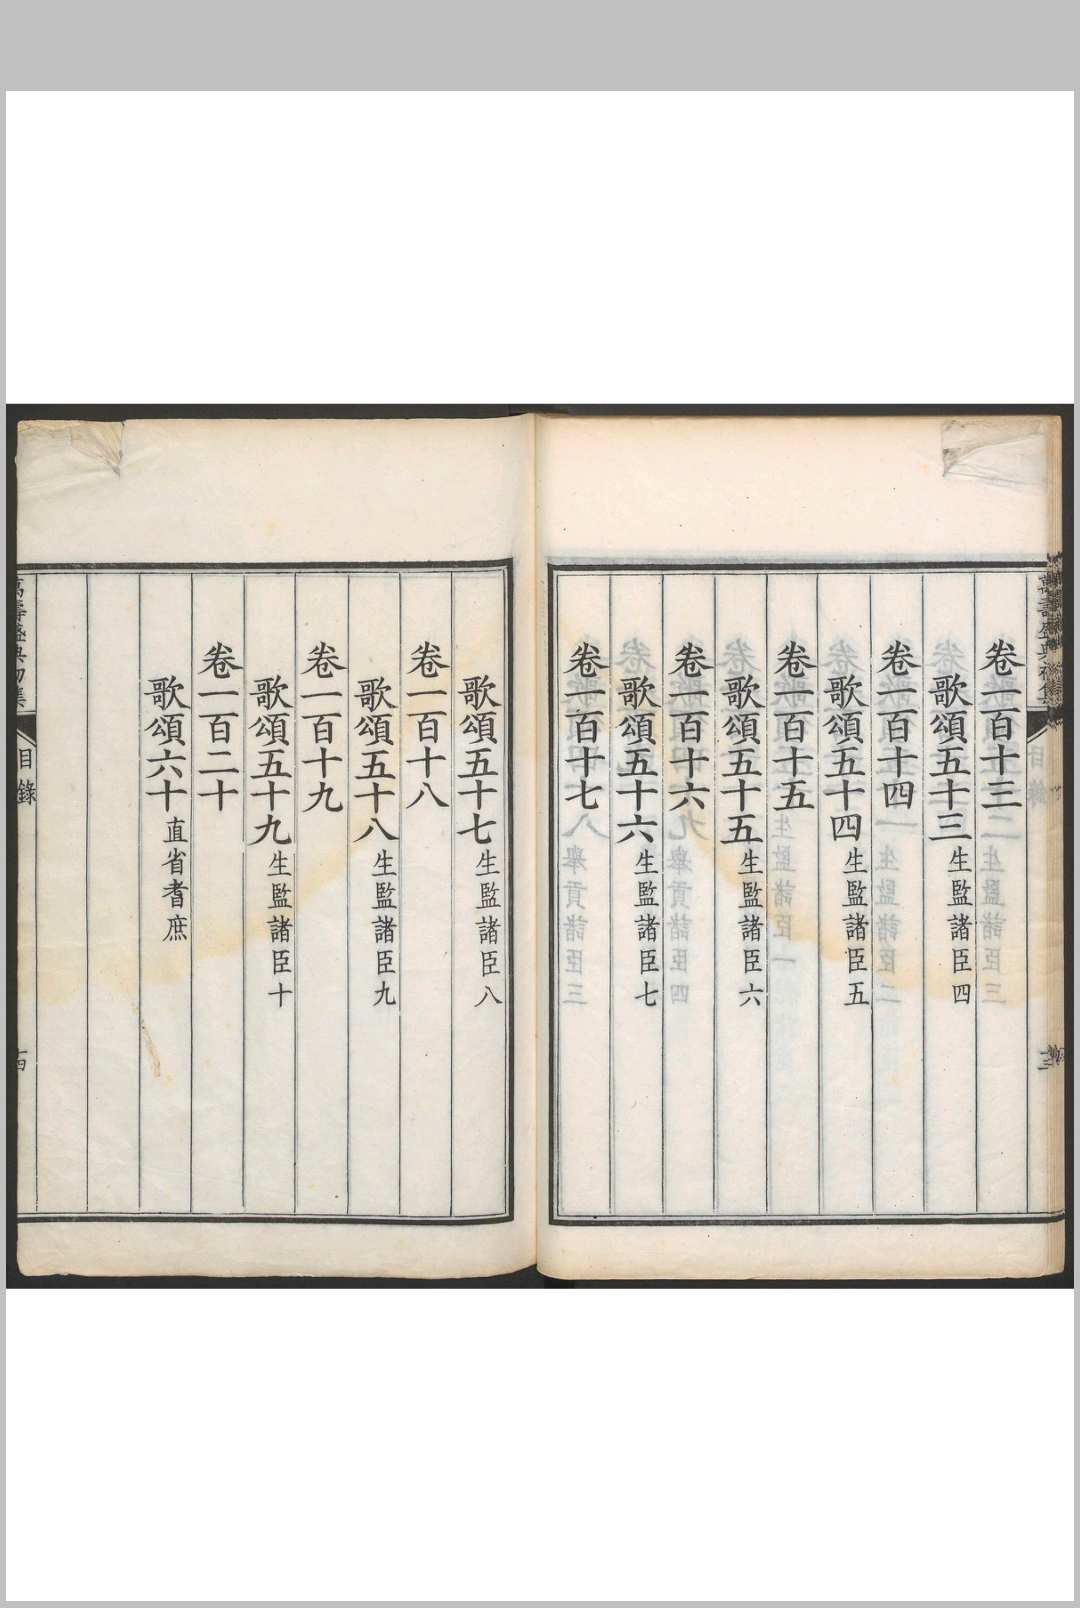 卷一百十三
歌頌五十三 生監諸臣四
卷一百十四
歌頌五十四 生監諸臣五
卷一百十五
歌頌五十五 生監諸臣六
卷一百十六
歌頌五十六 生監諸臣七
卷一百十七
歌頌五十七 生監諸臣八
卷一百十八
歌頌五十八 生監諸臣九
卷一百十九
歌頌五十九 生監諸臣十
卷一百二十
歌頌六十 直省耆庶
萬壽盛典初集
目錄
十四